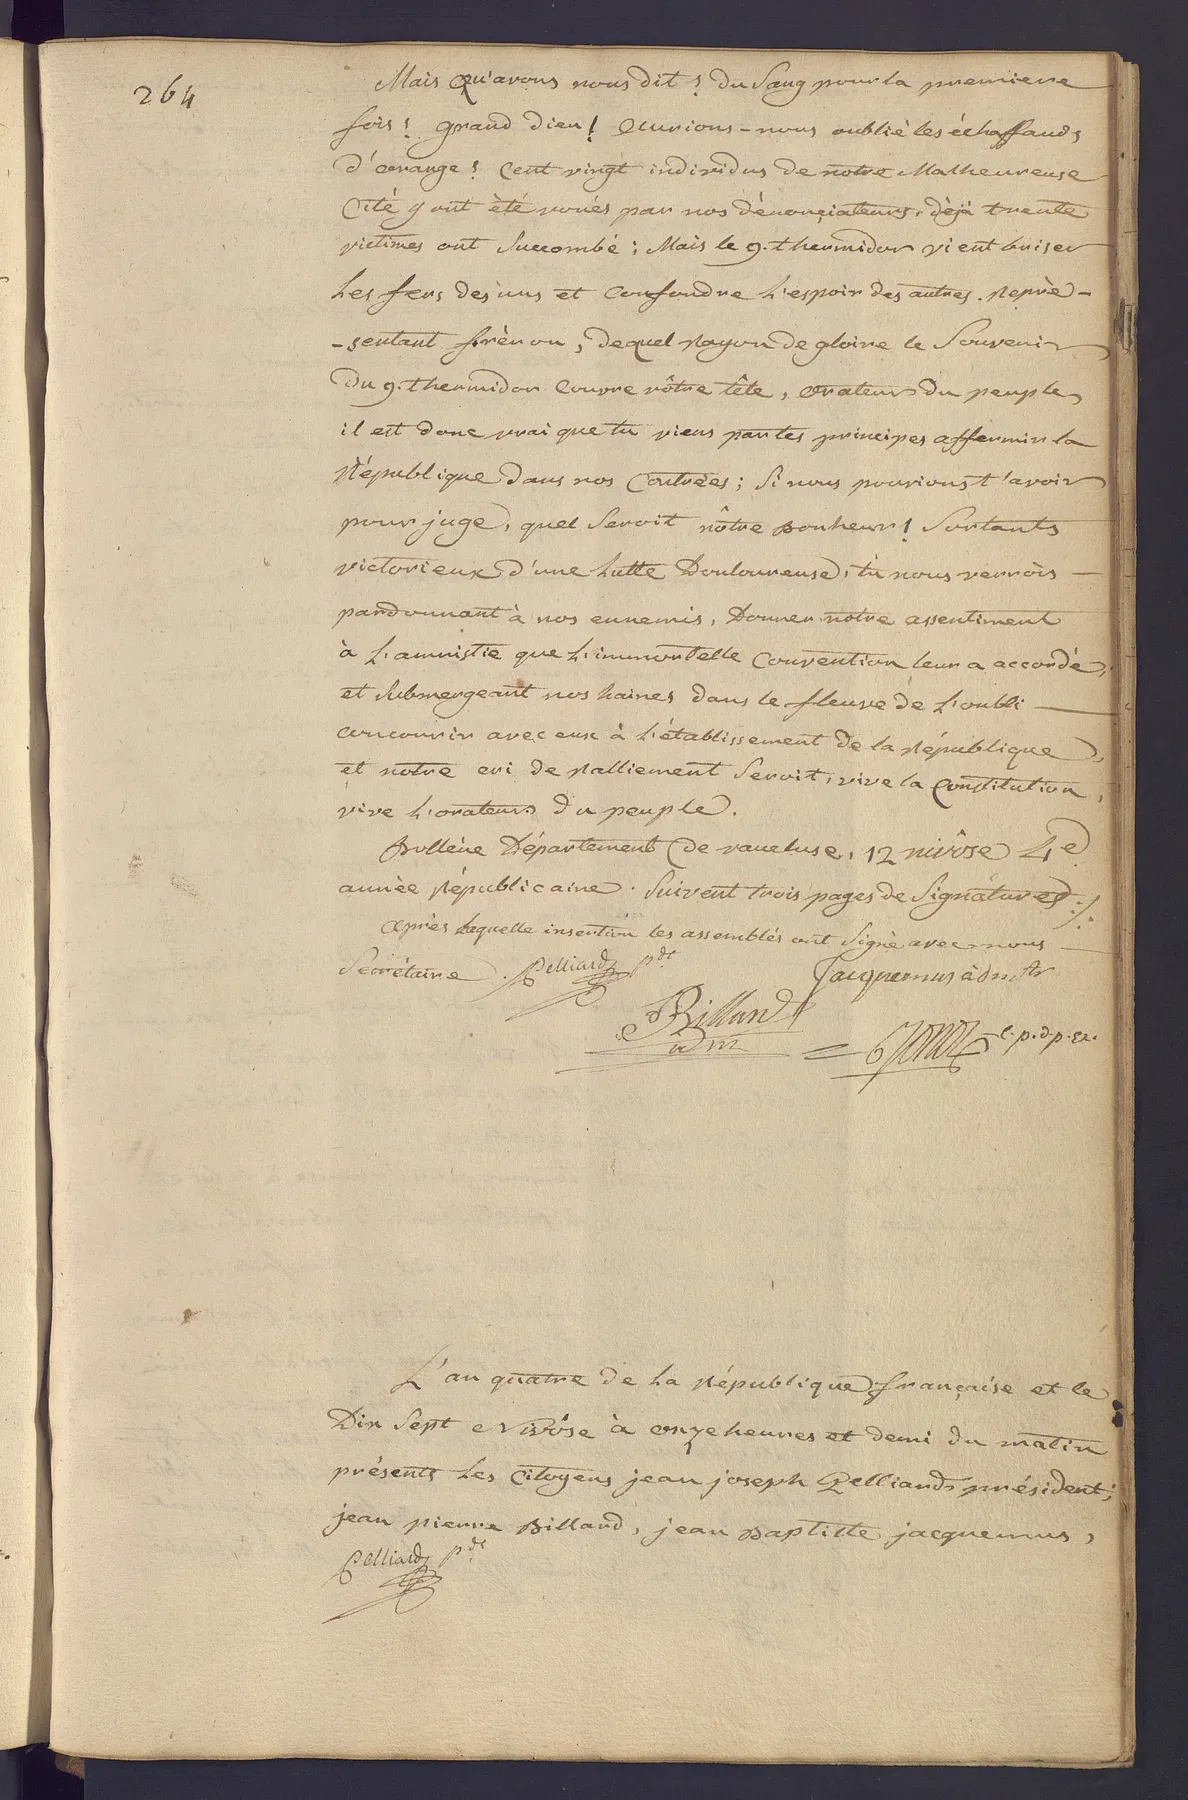 264
Mais qu'avons nous dit ! du Sang pour la premiere
fois ! grand dieu ! aurions-nous oublié les échaffauds
d'orange ! Cent vingt individus de notre Malheureuse
Cité y ont été voués par nos dénonciateurs, déjà trente
victimes ont Succombé ; Mais le 9. thermidor vient briser
les fers des uns et Confondre l'espoir des autres. Repré-
-sentant fréron, de quel Rayon de gloire le Souvenir
du 9. thermidor Couvre vôtre tête, orateur du peuple,
il est donc vrai que tu viens par tes principes affermir la
République dans nos Contrées ; Si nous pouvions t'avoir
pour juge, quel Seroit nôtre Bonheur ! Sortants
victorieux d'une lutte Douloureuse, tu nous verrois
pardonnant à nos ennemis, Donner notre assentiment
à l'amnistie que l'immortelle Convention leur a accordé,
et Submergeant nos haines dans le fleuve de l'oubli
concourir avec eux à l'établissement de la République,
et notre cri de ralliement Seroit, vive la Constitution,
vive l'orateur du peuple.
Bollène Département de vaucluse, 12 nivôse 4e
année Républicaine. Suivent trois pages de Signatures ./.
après laquelle insertion les assemblés ont Signé avec nous
Secrétaire. Pelliard pdt Jacquemus admtr
Billard
adm
c. p. d. p. ex.
L'an quatre de la République française et le
Dix Sept Nivôse à onze heures et demi du matin
présents les Citoyens jean joseph Pelliard président ;
jean pierre Billard, jean Baptiste jacquemus,
Pelliard pdt